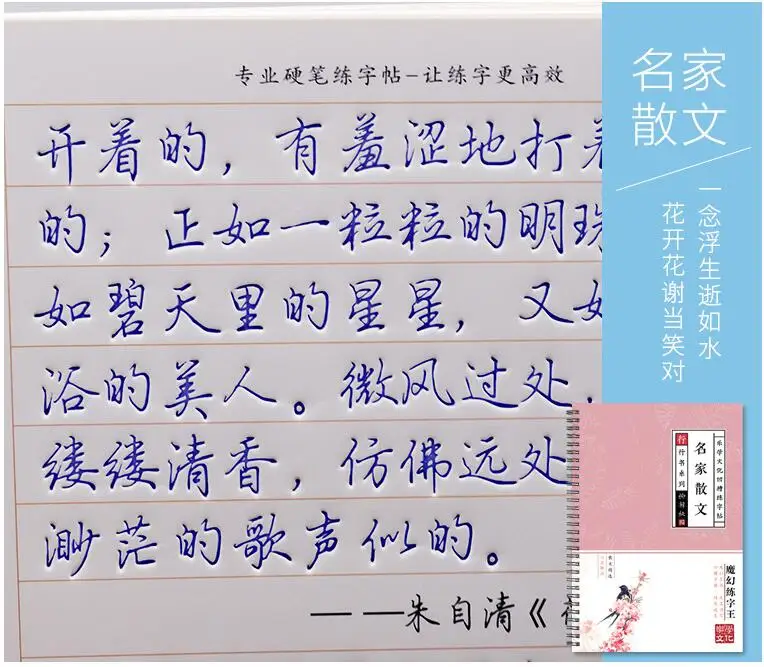 专业硬笔练字帖-让练字更高效
开着的，有羞涩地打着
的；正如一粒粒的明珠
如碧天里的星星，又如
浴的美人。微风过处，
缕缕清香，仿佛远处
渺茫的歌声似的。
——朱自清《荷
名家
散文
一念浮生逝如水
花开花谢当笑对
行
行书系列
名家散文
乐学文化凹槽练字帖
魔幻练字王